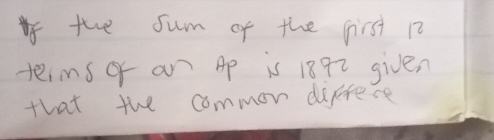 If the sum of the first 12
terms of an Ap is 1892 given
that the common differe